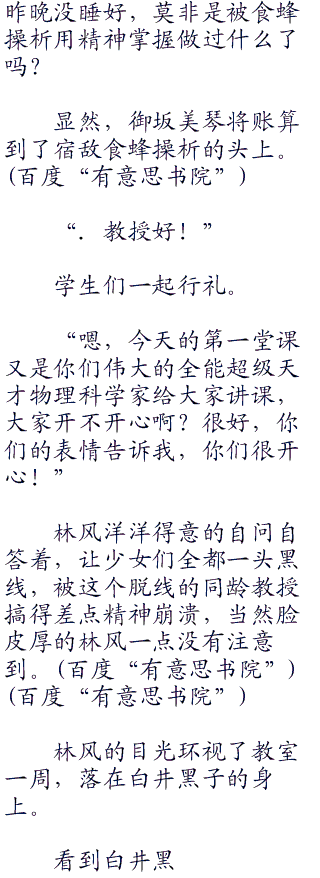 昨晚没睡好，莫非是被食蜂
操析用精神掌握做过什么了
吗？
显然，御坂美琴将账算
到了宿敌食蜂操析的头上。
(百度“有意思书院”)
“．教授好！”
学生们一起行礼。
“嗯，今天的第一堂课
又是你们伟大的全能超级天
才物理科学家给大家讲课，
大家开不开心啊？很好，你
们的表情告诉我，你们很开
心！”
林风洋洋得意的自问自
答着，让少女们全都一头黑
线，被这个脱线的同龄教授
搞得差点精神崩溃，当然脸
皮厚的林风一点没有注意
到。(百度“有意思书院”)
(百度“有意思书院”)
林风的目光环视了教室
一周，落在白井黑子的身
上。
看到白井黑